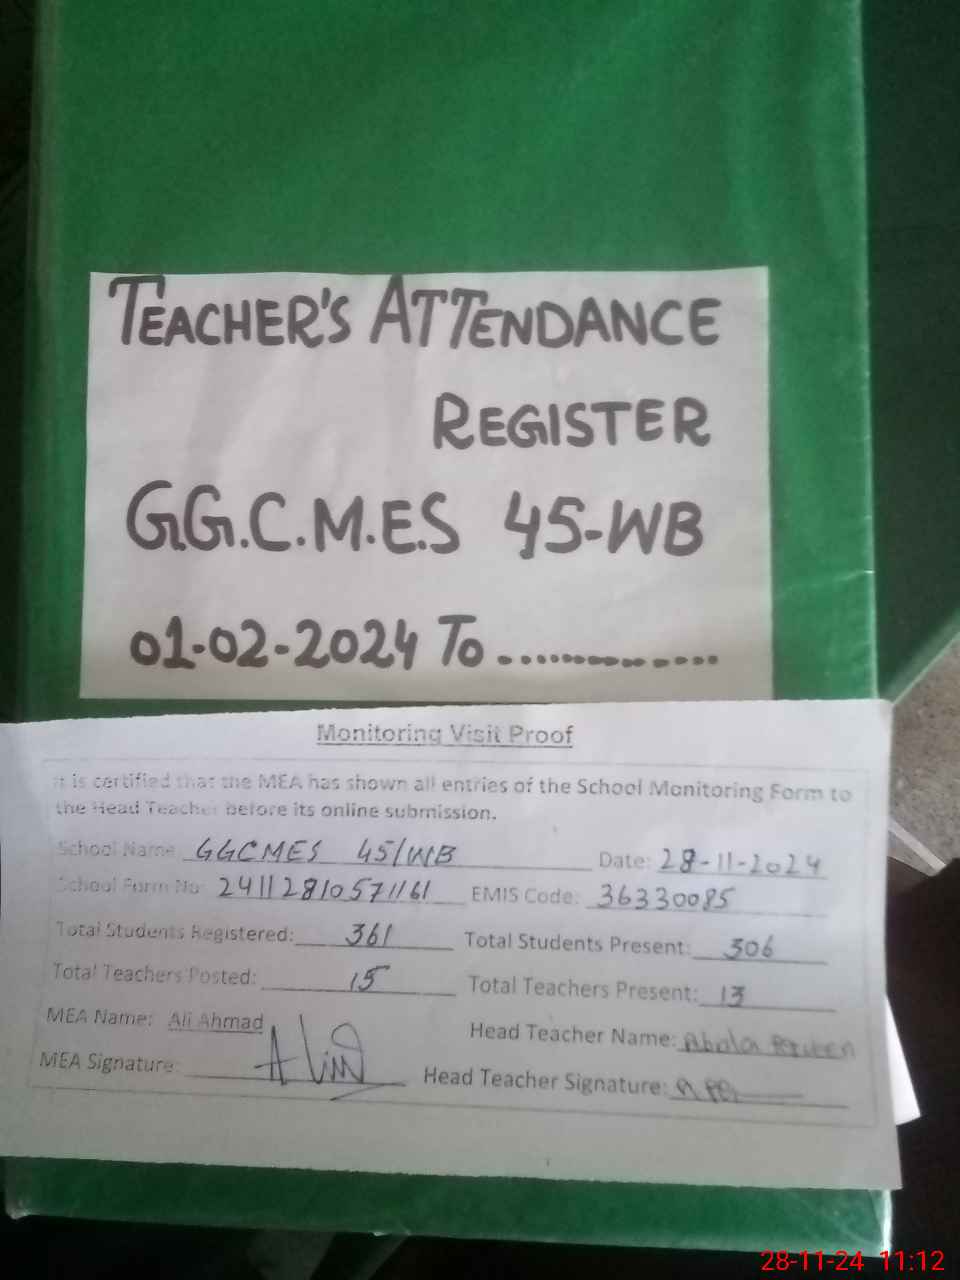 TEACHER'S ATTENDANCE
REGISTER
G.G.C.M.E.S 45-WB
01-02-2024 To ..............
Monitoring Visit Proof
It is certified that the MEA has shown all entries of the School Monitoring Form to
the Head Teacher before its online submission.
School Name: GGCMES 45/WB Date: 28-11-2024
School Form No: 24112810571161 EMIS Code: 36330085
Total Students Registered: 361 Total Students Present: 306
Total Teachers Posted: 15 Total Teachers Present: 13
MEA Name: Ali Ahmad Head Teacher Name:
MEA Signature: Head Teacher Signature:
28-11-24 11:12